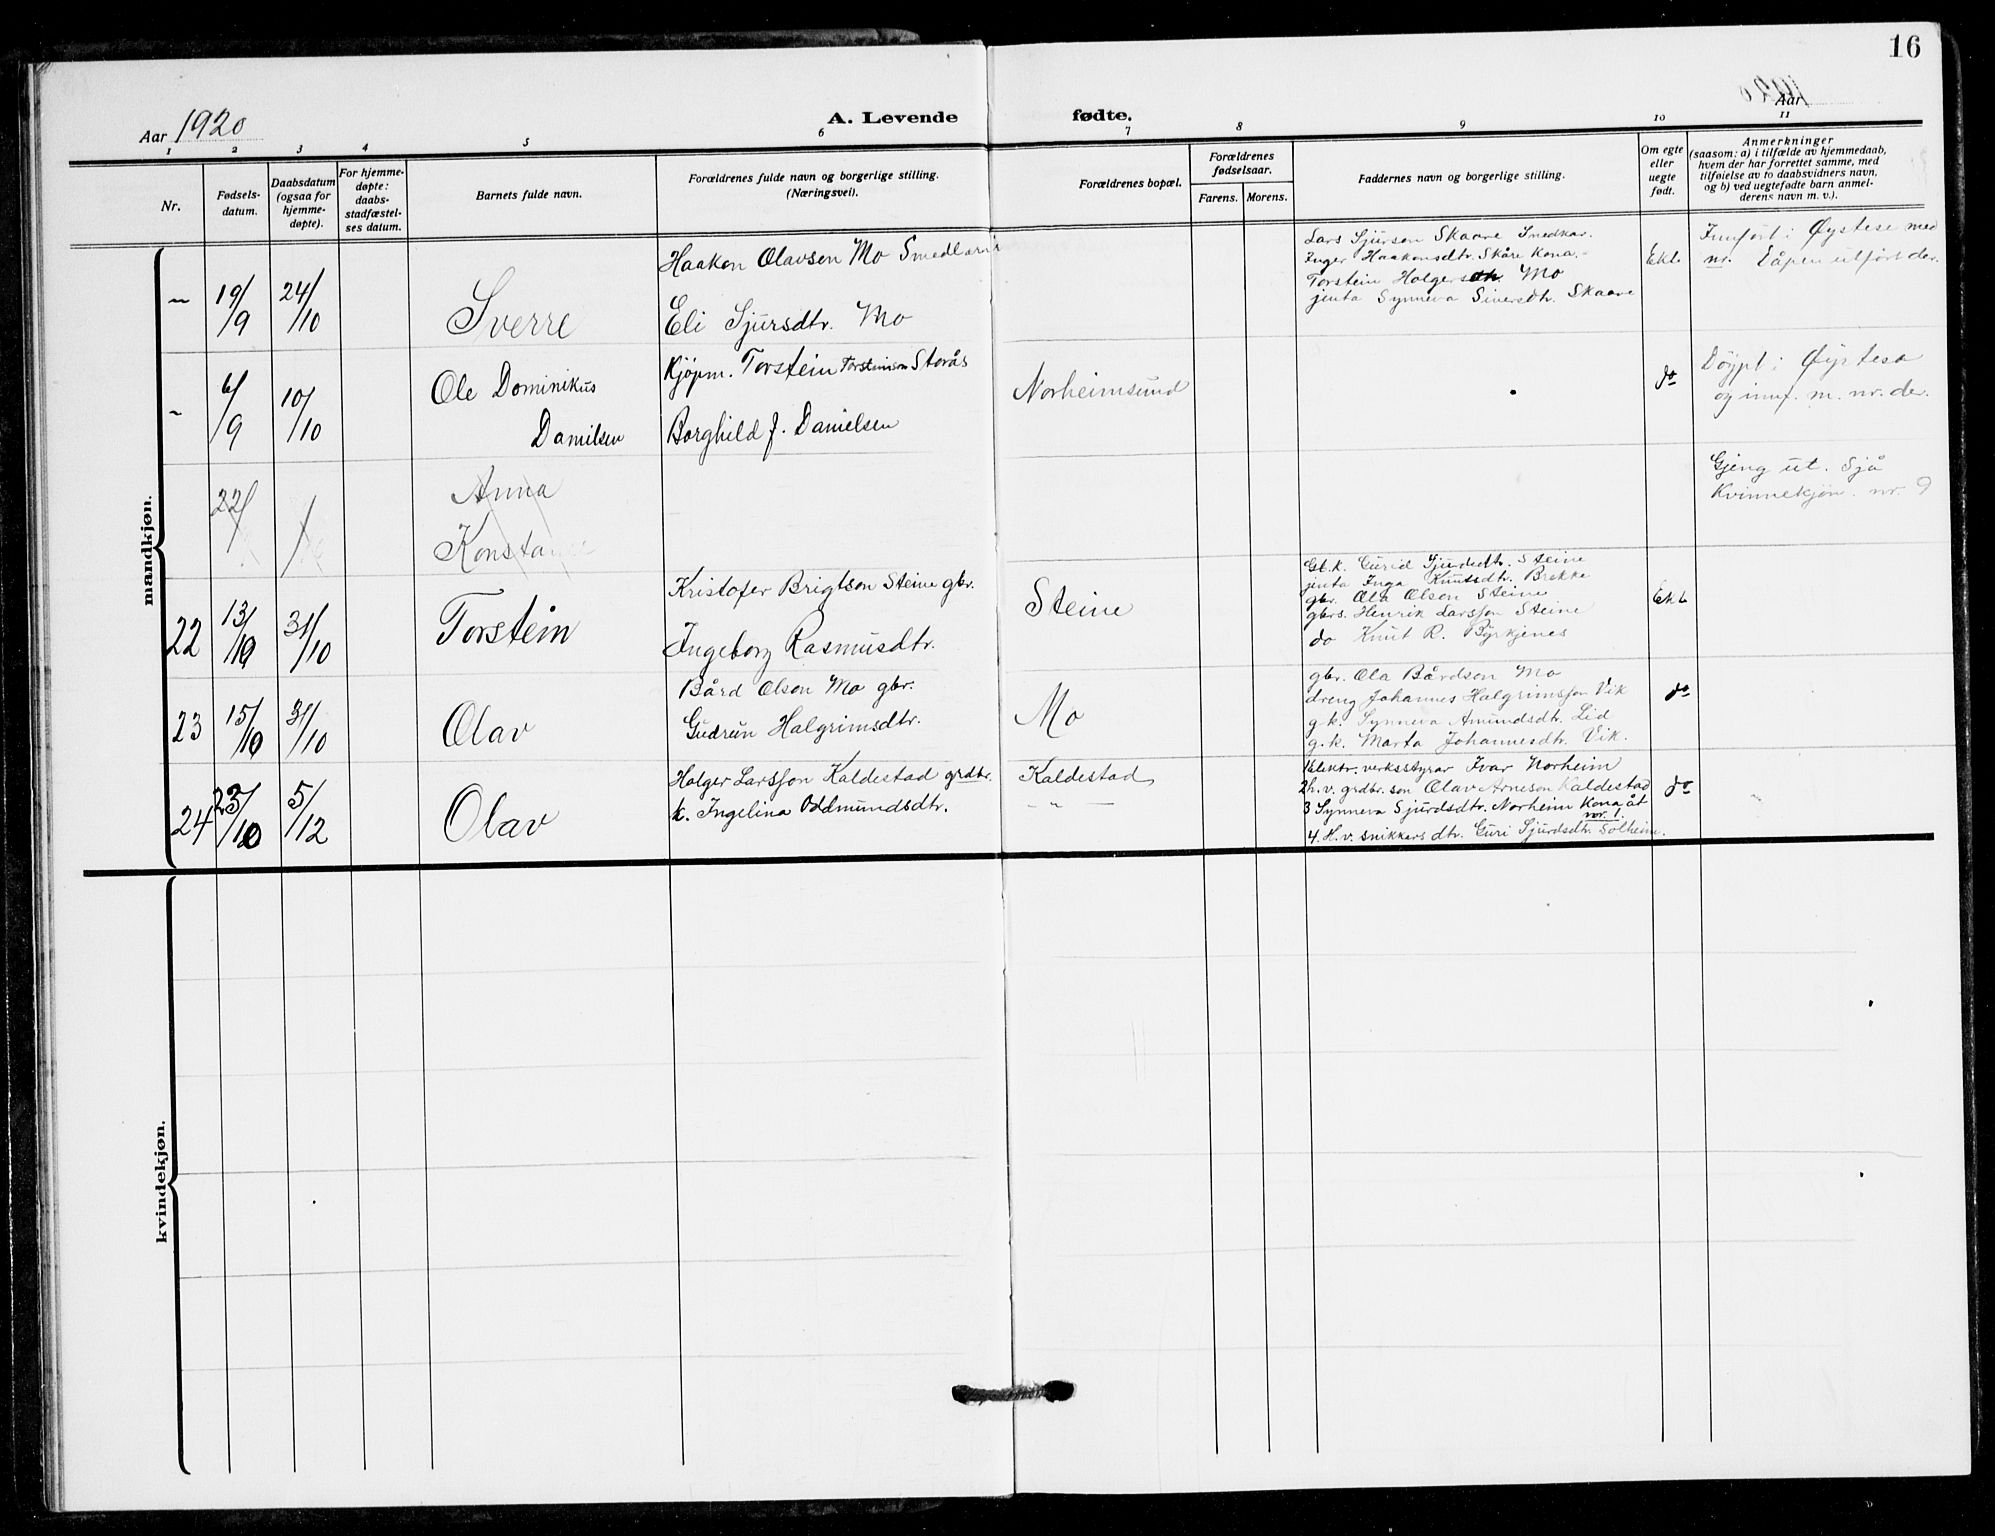 16
Aar 1920
A. Levende fødte.
Aar
1 2 3 4 5 6 7 8 9 10 11
Nr.
Fødsels-
datum.
Daabsdatum
(ogsaa for
hjemme-
døpte).
For hjemme-
døpte:
daabs-
stadfæstel-
ses datum.
Barnets fulde navn.
Forældrenes fulde navn og borgerlige stilling.
(Næringsvei).
Forældrenes bopæl.
Forældrenes
fødselsaar.
Farens. Morens.
Faddernes navn og borgerlige stilling.
Om egte
eller
uegte
født.
Anmerkninger
(saasom: a) i tilfælde av hjemmedaab,
hvem der har forrettet samme, med
tilføielse av to daabsvidners navn,
og b) ved uegtefødte barn anmel-
derens navn m. v.).
mandkjøn.
– 19/9 24/10
Sverre
Haakon Olavsen Mo
Eli Sjursdtr. Mo
Lars Sjursen Skaare Smedkar.
Inger Haakonsdtr. Skåre Kona.
Torstein Holgers Mo
jenta Synneva Siversdtr. Skaare
Ekt.
Innført i Øystese med
nr. utført der.
- 6/9 10/10
Ole Dominikus
Danielsen
Kjøpm. Torstein Torsteinson Storås
Borghild J. Danielsen
Norheimsund
do
Døypt i Øystese
og innf. m. nr. der.
22/
Anna
Gjeng ut. Sjå
Kvinnekjøn. nr. 9
22 13/10 31/10
Torstein
Kristofer Brigtson Steine gbr.
Ingeborg Rasmusdtr.
Steine
Gb.k. Gurid Sjurdsdtr. Steine
jenta Inga Knutsdtr. Brekke
gbr. Ola Olson Steine
gbrs. Henrik Larsson Steine
do Knut R. Byrkjenes
Ekt
23 15/10 31/10
Olav
Bård Olson Mo gbr.
Gudrun Halgrimsdtr.
Mo
gbr. Ola Bårdson Mo
dreng Johannes Halgrimsson Vik
g.k. Synneva Amundsdtr. Lid
g.k. Marta Johannesdtr. Vik.
do
24 23/10 5/12
Olav
Holger Larsson Kaldestad grdbr.
k. Ingelina Oddmundsdtr.
Kaldestad
" –
1 Elektr. verksstyrar Ivar Norheim
2 h.v. grdbr. son Olav Arneson Kaldestad
3 Synneva Sjurdsdtr. Norheim Kona åt
nr. 1.
4. H.v. snikkars dtr. Guri Sjurdsdtr. Solheim.
do
kvindekjøn.